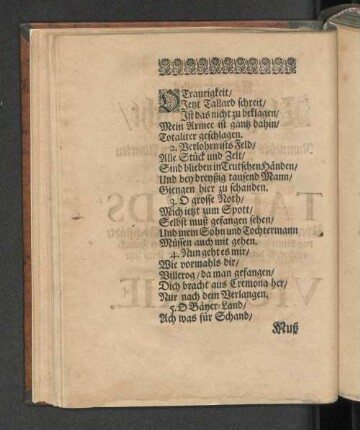 O Traurigkeit/
Jetzt Tallard schreit/
Ist das nicht zu beklagen/
Mein Armee ist gantz dahin/
Totaliter geschlagen.
2. Verlohren ists Feld/
Alle Stück und Zelt/
Sind blieben in Teutschen Händen/
Und bey dreyßig tausend Mann/
Giengen hier zu schanden.
3. O grosse Noth/
Mich jetzt zum Spott/
Selbst muß gefangen sehen/
Und mein Sohn und Tochtermann
Müsen auch mit gehen.
4. Nun geht es mir/
Wie vormahls dir/
Villerog/ da man gefangen/
Dich bracht aus Cremona her/
Nur nach dem Verlangen.
5. O Bäyer-Land/
Ach was für Schand/
Muß